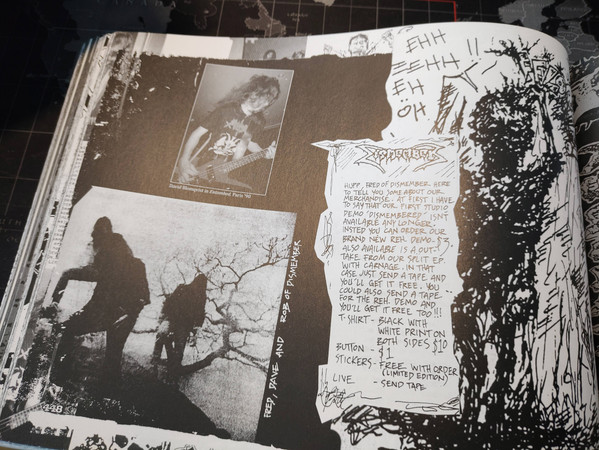 EHH
ZEHH !!
EH
ÖH
David Blomqvist in Entombed Paris
DISMEMBER
HUFF, FRED OF DISMEMBER HERE
TO TELL YOU SOME ABOUT OUR
MERCHANDISE. AT FIRST I HAVE
TO SAY THAT OUR FIRST STUDIO
DEMO "DISMEMBERED" ISNT
AVAILABLE ANY LONGER.
INSTED YOU CAN ORDER OUR
BRAND NEW REH. DEMO. $3.
ALSO AVAILABLE IS A OUT-
TAKE FROM OUR SPLIT EP.
WITH CARNAGE. IN THAT
CASE JUST SEND A TAPE AND
YOU'LL GET IT FREE. YOU
COULD ALSO SEND A TAPE
FOR THE REH. DEMO AND
YOU'LL GET IT FREE TOO!!!
T-SHIRT - BLACK WITH
WHITE PRINT ON
BOTH SIDES $10
BUTTON - $1
STICKERS - FREE WITH ORDER
(LIMITED EDITION)
LIVE - SEND TAPE
FRED, DAVE AND ROB OF DISMEMBER